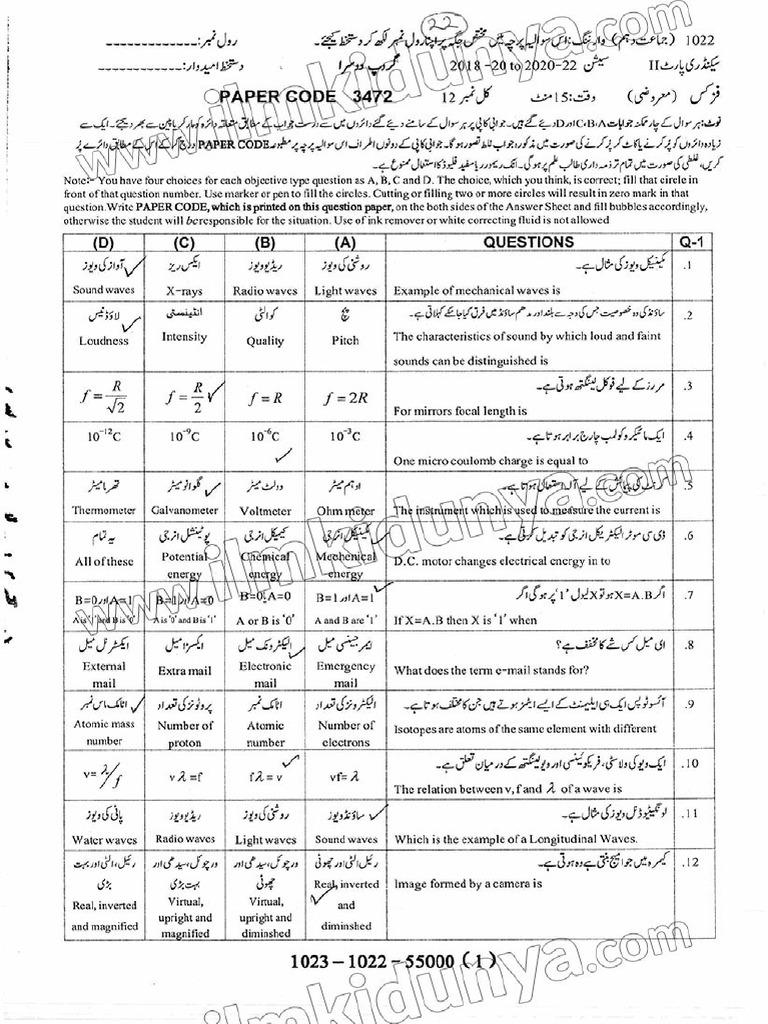 22
1022 (جماعت دہم) وارننگ: اس سوالیہ پرچہ میں مختص جگہ پر اپنا رول نمبر لکھ کر دستخط کیجئے۔ رول نمبر: -------------
سیکنڈری پارٹ II سیشن 2018-20 to 2020-22 گروپ دوسرا دستخط امیدوار: -------------
فزکس (معروضی) وقت: 15 منٹ کل نمبر 12 PAPER CODE 3472
Note:- You have four choices for each objective type question as A, B, C and D. The choice, which you think, is correct; fill that circle in
front of that question number. Use marker or pen to fill the circles. Cutting or filling two or more circles will result in zero mark in that
question. Write PAPER CODE, which is printed on this question paper, on the both sides of the Answer Sheet and fill bubbles accordingly,
otherwise the student will be responsible for the situation. Use of ink remover or white correcting fluid is not allowed
(D) (C) (B) (A) QUESTIONS Q-1
آواز کی ویوز ایکس ریز ریڈیو ویوز روشنی کی ویوز مکینیکل ویوز کی مثال ہے۔ .1
Sound waves X-rays Radio waves Light waves Example of mechanical waves is
لاؤڈنیس انٹینسٹی کوالٹی پچ ساؤنڈ کی وہ خصوصیت جس کی وجہ سے بلند اور مدھم ساؤنڈ میں فرق کیا جا سکے کہلاتی ہے۔ .2
Loudness Intensity Quality Pitch The characteristics of sound by which loud and faint
sounds can be distinguished is
f = R/√2 f = R/2 f = R f = 2R مررز کے لیے فوکل لینگتھ ہوتی ہے۔ .3
For mirrors focal length is
10⁻¹²C 10⁻⁹C 10⁻⁶C 10⁻³C ایک مائیکرو کولمب چارج برابر ہوتا ہے۔ .4
One micro coulomb charge is equal to
تھرمامیٹر گلوانومیٹر وولٹ میٹر اوہم میٹر کرنٹ کی پیمائش کے لیے آلہ استعمال ہوتا ہے۔ .5
Thermometer Galvanometer Voltmeter Ohm meter The instrument which is used to measure the current is
یہ تمام پوٹینشل انرجی کیمیکل انرجی مکینیکل انرجی ڈی سی موٹر الیکٹریکل انرجی کو تبدیل کرتی ہے۔ .6
All of these Potential energy Chemical energy Mechenical energy D.C. motor changes electrical energy in to
B=0 اور A=1 B=1 اور A=0 B=0, A=0 B=1 اور A=1 اگر X=A.B ہو تو X لیول '1' پر ہوگی اگر .7
A is '1' and B is '0' A is '0' and B is '1' A or B is '0' A and B are '1' If X=A.B then X is '1' when
ایکسٹرنل میل ایکسٹرا میل الیکٹرونک میل ایمرجینسی میل ای میل کس شے کا مخفف ہے؟ .8
External mail Extra mail Electronic mail Emergency mail What does the term e-mail stands for?
اٹامک ماس نمبر پروٹونز کی تعداد اٹامک نمبر الیکٹرونز کی تعداد آئسوٹوپس ایک ہی ایلیمنٹ کے ایسے ایٹمز ہوتے ہیں جن کا مختلف ہوتا ہے۔ .9
Atomic mass number Number of proton Atomic number Number of electrons Isotopes are atoms of the same element with different
v= λ/f v λ =f f λ = v vf= λ ایک ویو کی ولاسٹی، فریکوئینسی اور ویو لینگتھ کے درمیان تعلق ہے۔ .10
The relation between v, f and λ of a wave is
پانی کی ویوز ریڈیو ویوز روشنی کی ویوز ساؤنڈ ویوز لونگیٹیوڈنل ویوز کی مثال ہے۔ .11
Water waves Radio waves Light waves Sound waves Which is the example of a Longitudinal Waves.
رئیل، الٹی اور بہت بڑی ورچوئل، سیدھی اور بہت بڑی ورچوئل، سیدھی اور چھوٹی رئیل، الٹی اور چھوٹی کیمرہ میں جو امیج بنتی ہے وہ ہوتی ہے۔ .12
Real, inverted and magnified Virtual, upright and magnified Virtual, upright and diminshed Real, inverted and diminshed Image formed by a camera is
1023 – 1022 – 55000 (1)
www.ilmkidunya.com
www.ilmkidunya.com
www.ilmkidunya.com
ilmkidunya.com